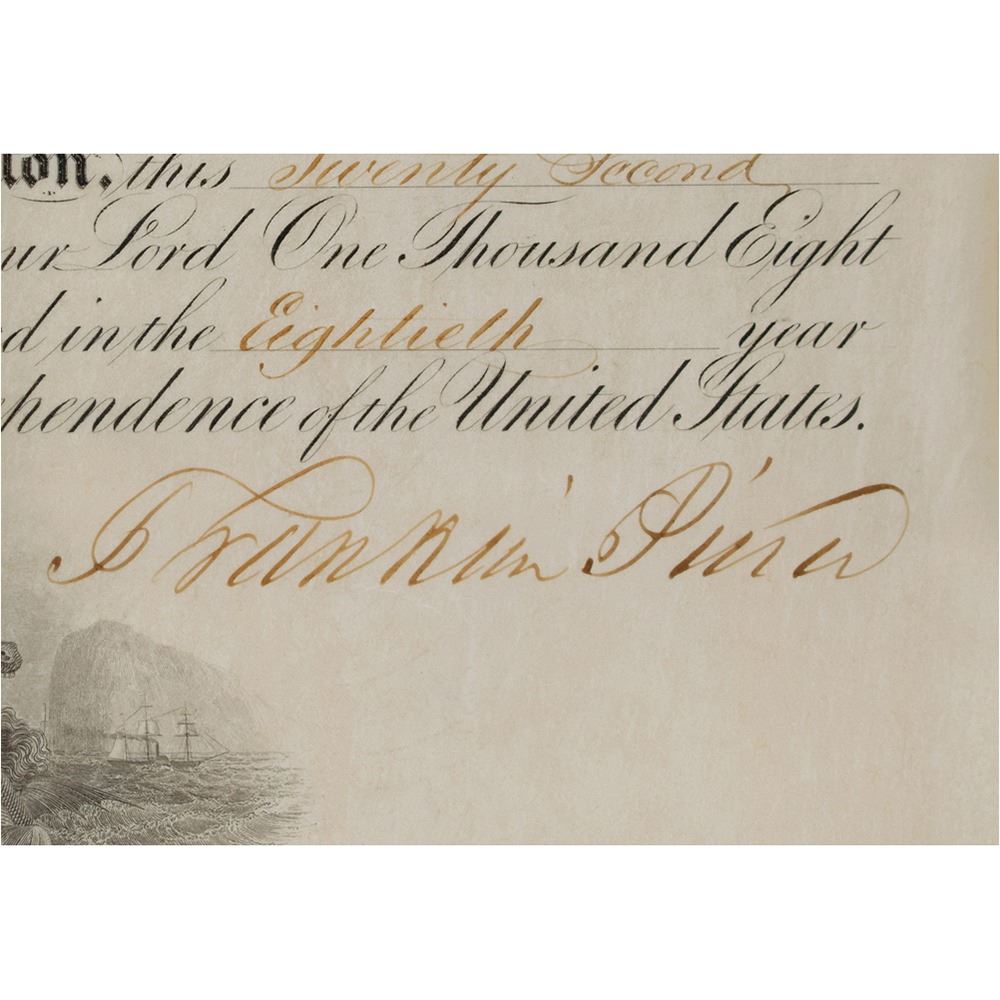 ton, this Twenty Second
ur Lord One Thousand Eight
d in the Eightieth year
pendence of the United States.
Franklin Pierce